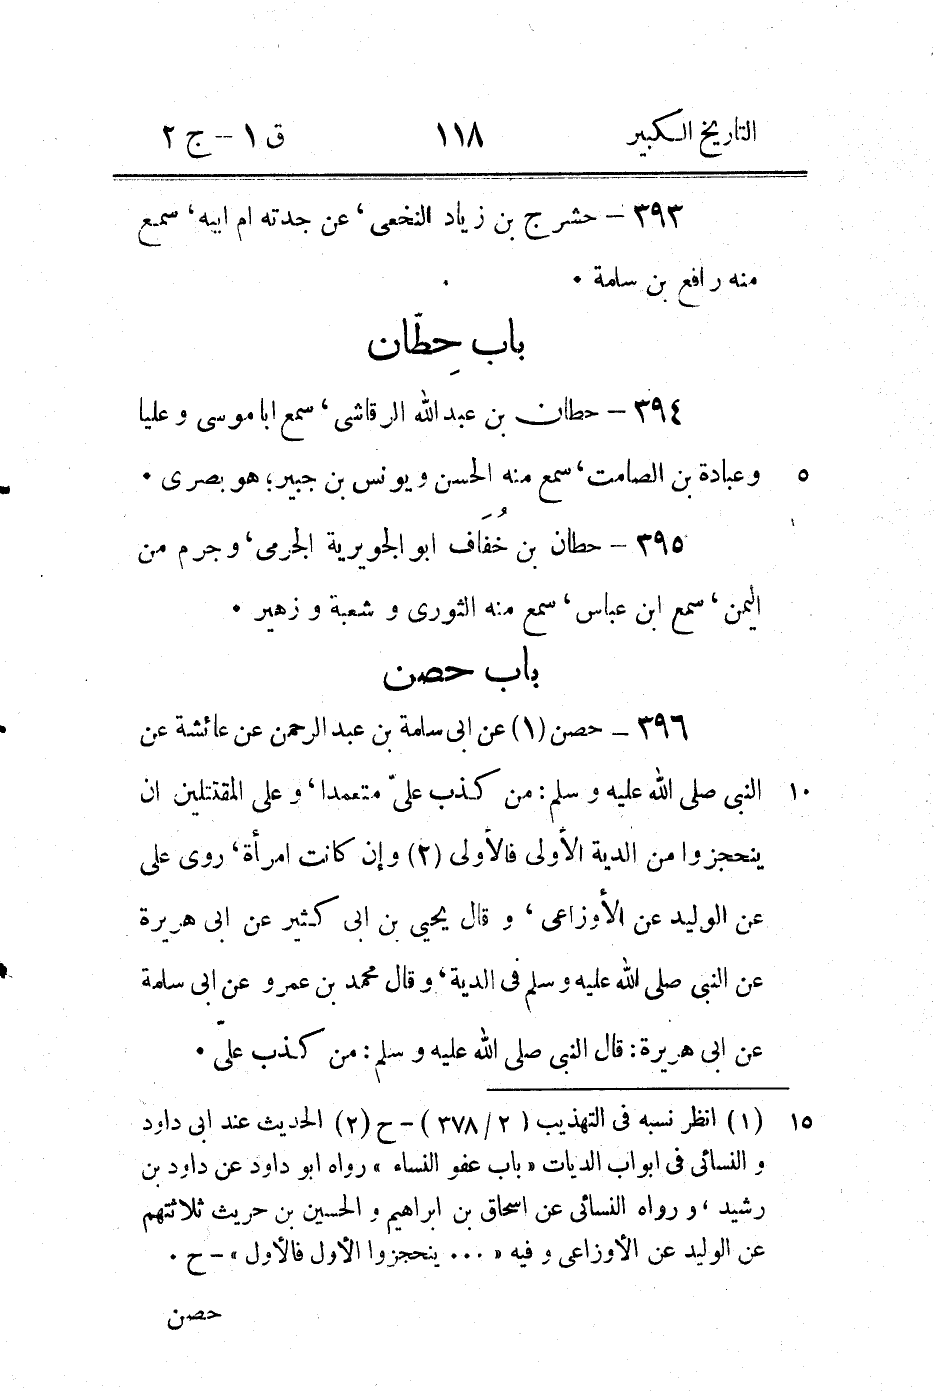 التاريخ الكبير ١١٨ ق ١ – ج ٢
٣٩٣ – حشرج بن زياد النخعى، عن جدته ام ابيه، سمع
منه رافع بن سلمة ٠
باب حِطّان
٣٩٤ – حطان بن عبد الله الرقاشى، سمع ابا موسى و عليا
٥ وعبادة بن الصامت، سمع منه الحسن و يونس بن جبير؛ هو بصرى ٠
٣٩٥ – حطان بن خُفَاف ابو الجويرية الجرمى، و جرم من
اليمن، سمع ابن عباس، سمع منه الثورى و شعبة و زهير ٠
باب حصن
٣٩٦ – حصن (١) عن ابى سلمة بن عبد الرحمن عن عائشة عن
١٠ النبى صلى الله عليه و سلم: من كذب علىّ متعمدا، و على المقتتلين ان
ينحجزوا من الدية الأولى فالأولى (٢) وإن كانت امرأة، روى على
عن الوليد عن الأوزاعى، و قال يحيى بن ابى كثير عن ابى هريرة
عن النبى صلى الله عليه و سلم فى الدية، و قال محمد بن عمرو عن ابى سلمة
عن ابى هريرة: قال النبى صلى الله عليه و سلم: من كذب علىّ ٠
١٥ (١) انظر نسبه فى التهذيب (٢/ ٣٧٨) – ح (٢) الحديث عند ابى داود
و النسائى فى ابواب الديات « باب عفو النساء » رواه ابو داود عن داود بن
رشيد، و رواه النسائى عن اسحاق بن ابراهيم و الحسين بن حريث ثلاثتهم
عن الوليد عن الأوزاعى و فيه « ... ينحجزوا الأول فالأول » – ح ٠
حصن